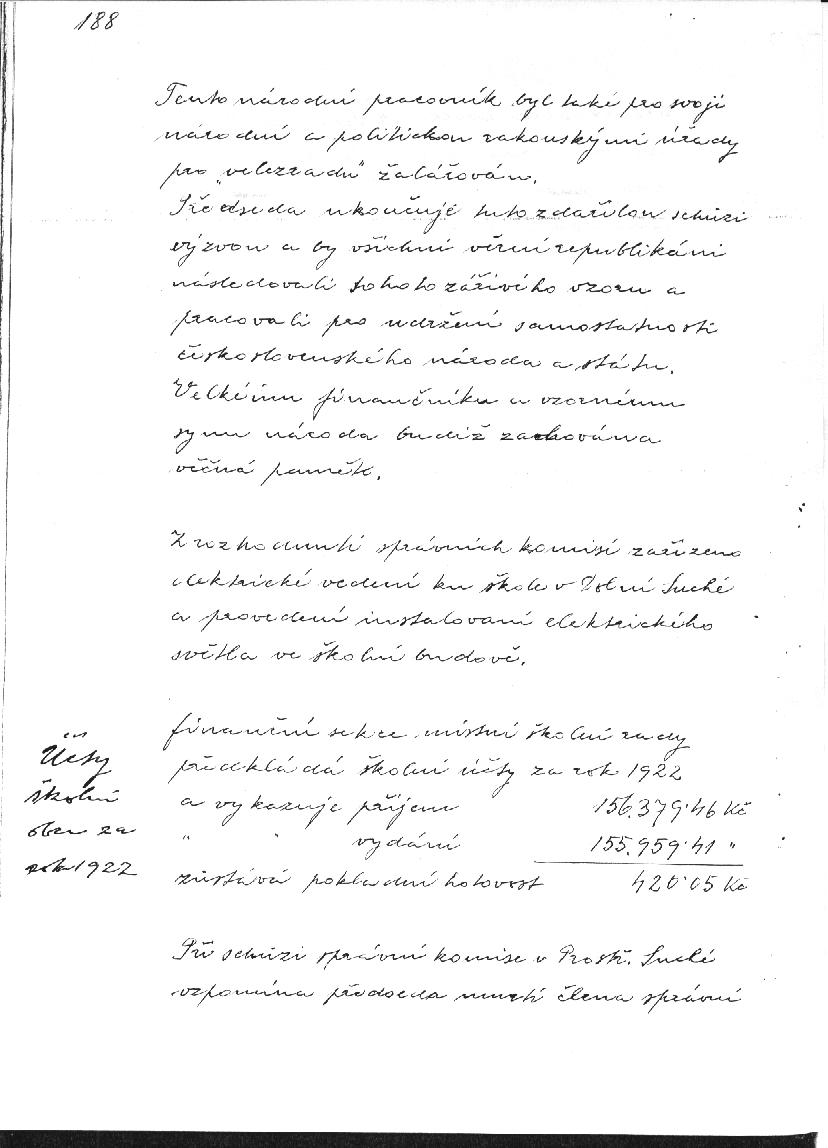 188
Tento národní pracovník byl také pro svoji
národní a politickou rakouskými úřady
pro „velezradu" žalářován.
Předseda ukončuje tuto zdařilou schůzi
výzvou a by všichni věrní republikáni
následovali tohoto zářivého vzoru a
pracovali pro udržení samostatnosti
československého národa a státu.
Velkému finančníku a vzornému
synu národa budiž zachována
věčná paměť.
Z rozhodnutí správních komisí zařízeno
elektrické vedení ku škole v Dolní Suché
a provedení instalovaní elektrického
světla ve školní budově.
Účty
školní
obce za
rok 1922
finanční sekce místní školní rady
předkládá školní účty za rok 1922
a vykazuje příjem 156.379·46 Kč
" " vydání 155.959·41 "
zůstává pokladní hotovost 420·05 Kč
Při schůzi správní komise v Prostř. Suché
vzpomíná předseda úmrtí člena správní